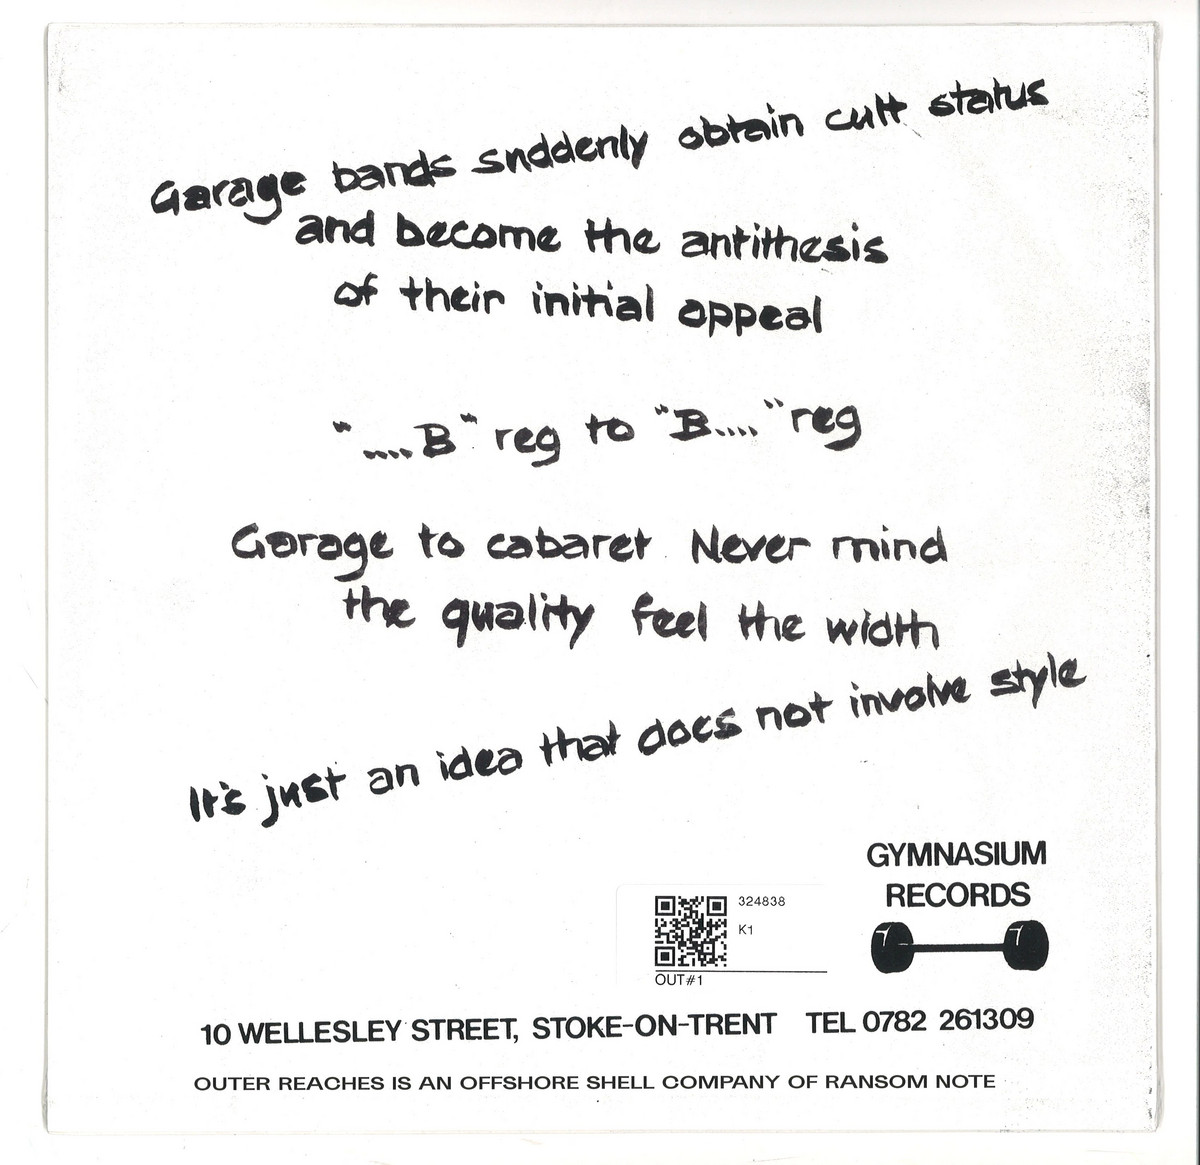 Garage bands snddenly obtain cult status
and become the antithesis
of their initial appeal
"....B" reg to "B...." reg
Garage to cabaret. Never mind
the quality feel the width
It's just an idea that does not involve style
GYMNASIUM
RECORDS
324838
K1
OUT#1
10 WELLESLEY STREET, STOKE-ON-TRENT TEL 0782 261309
OUTER REACHES IS AN OFFSHORE SHELL COMPANY OF RANSOM NOTE